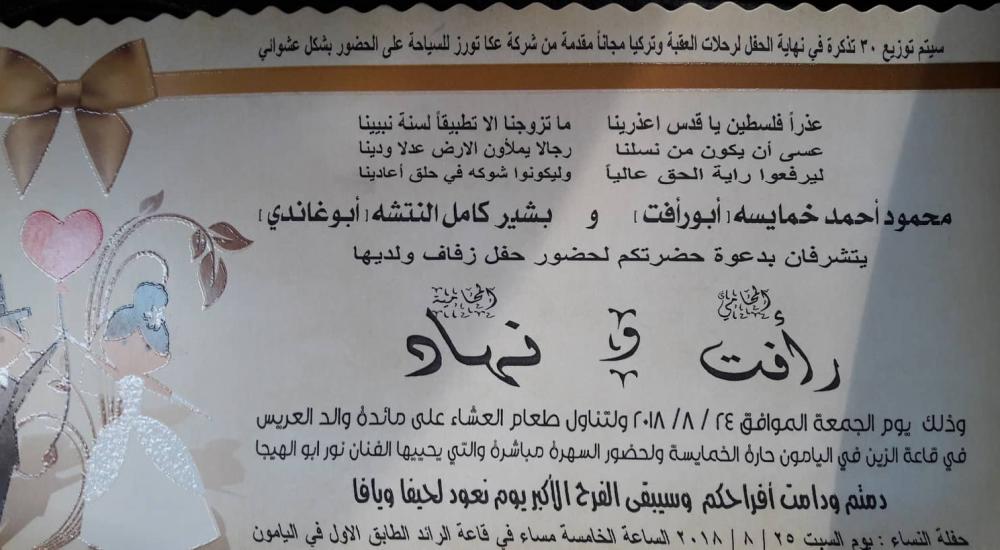 سيتم توزيع ٣٠ تذكرة في نهاية الحفل لرحلات العقبة وتركيا مجاناً مقدمة من شركة عكا تورز للسياحة على الحضور بشكل عشوائي
عذراً فلسطين يا قدس اعذرينا ما تزوجنا الا تطبيقاً لسنة نبيينا
عسى أن يكون من نسلنا رجالا يملأون الارض عدلا ودينا
ليرفعوا راية الحق عالياً وليكونوا شوكه في حلق أعادينا
محمود أحمد خمايسه [أبورأفت] و بشير كامل النتشه [أبوغاندي]
يتشرفان بدعوة حضرتكم لحضور حفل زفاف ولديها
المحامي المحامية
رأفت و نهاد
وذلك يوم الجمعة الموافق ٢٤ / ٨ / ٢٠١٨ ولتناول طعام العشاء على مائدة والد العريس
في قاعة الزين في اليامون حارة الخمايسة ولحضور السهرة مباشرة والتي يحييها الفنان نور ابو الهيجا
دمتم ودامت أفراحكم وسيبقى الفرح الأكبر يوم نعود لحيفا ويافا
حفلة النساء : يوم السبت ٢٥ / ٨ / ٢٠١٨ الساعة الخامسة مساء في قاعة الرائد الطابق الاول في اليامون